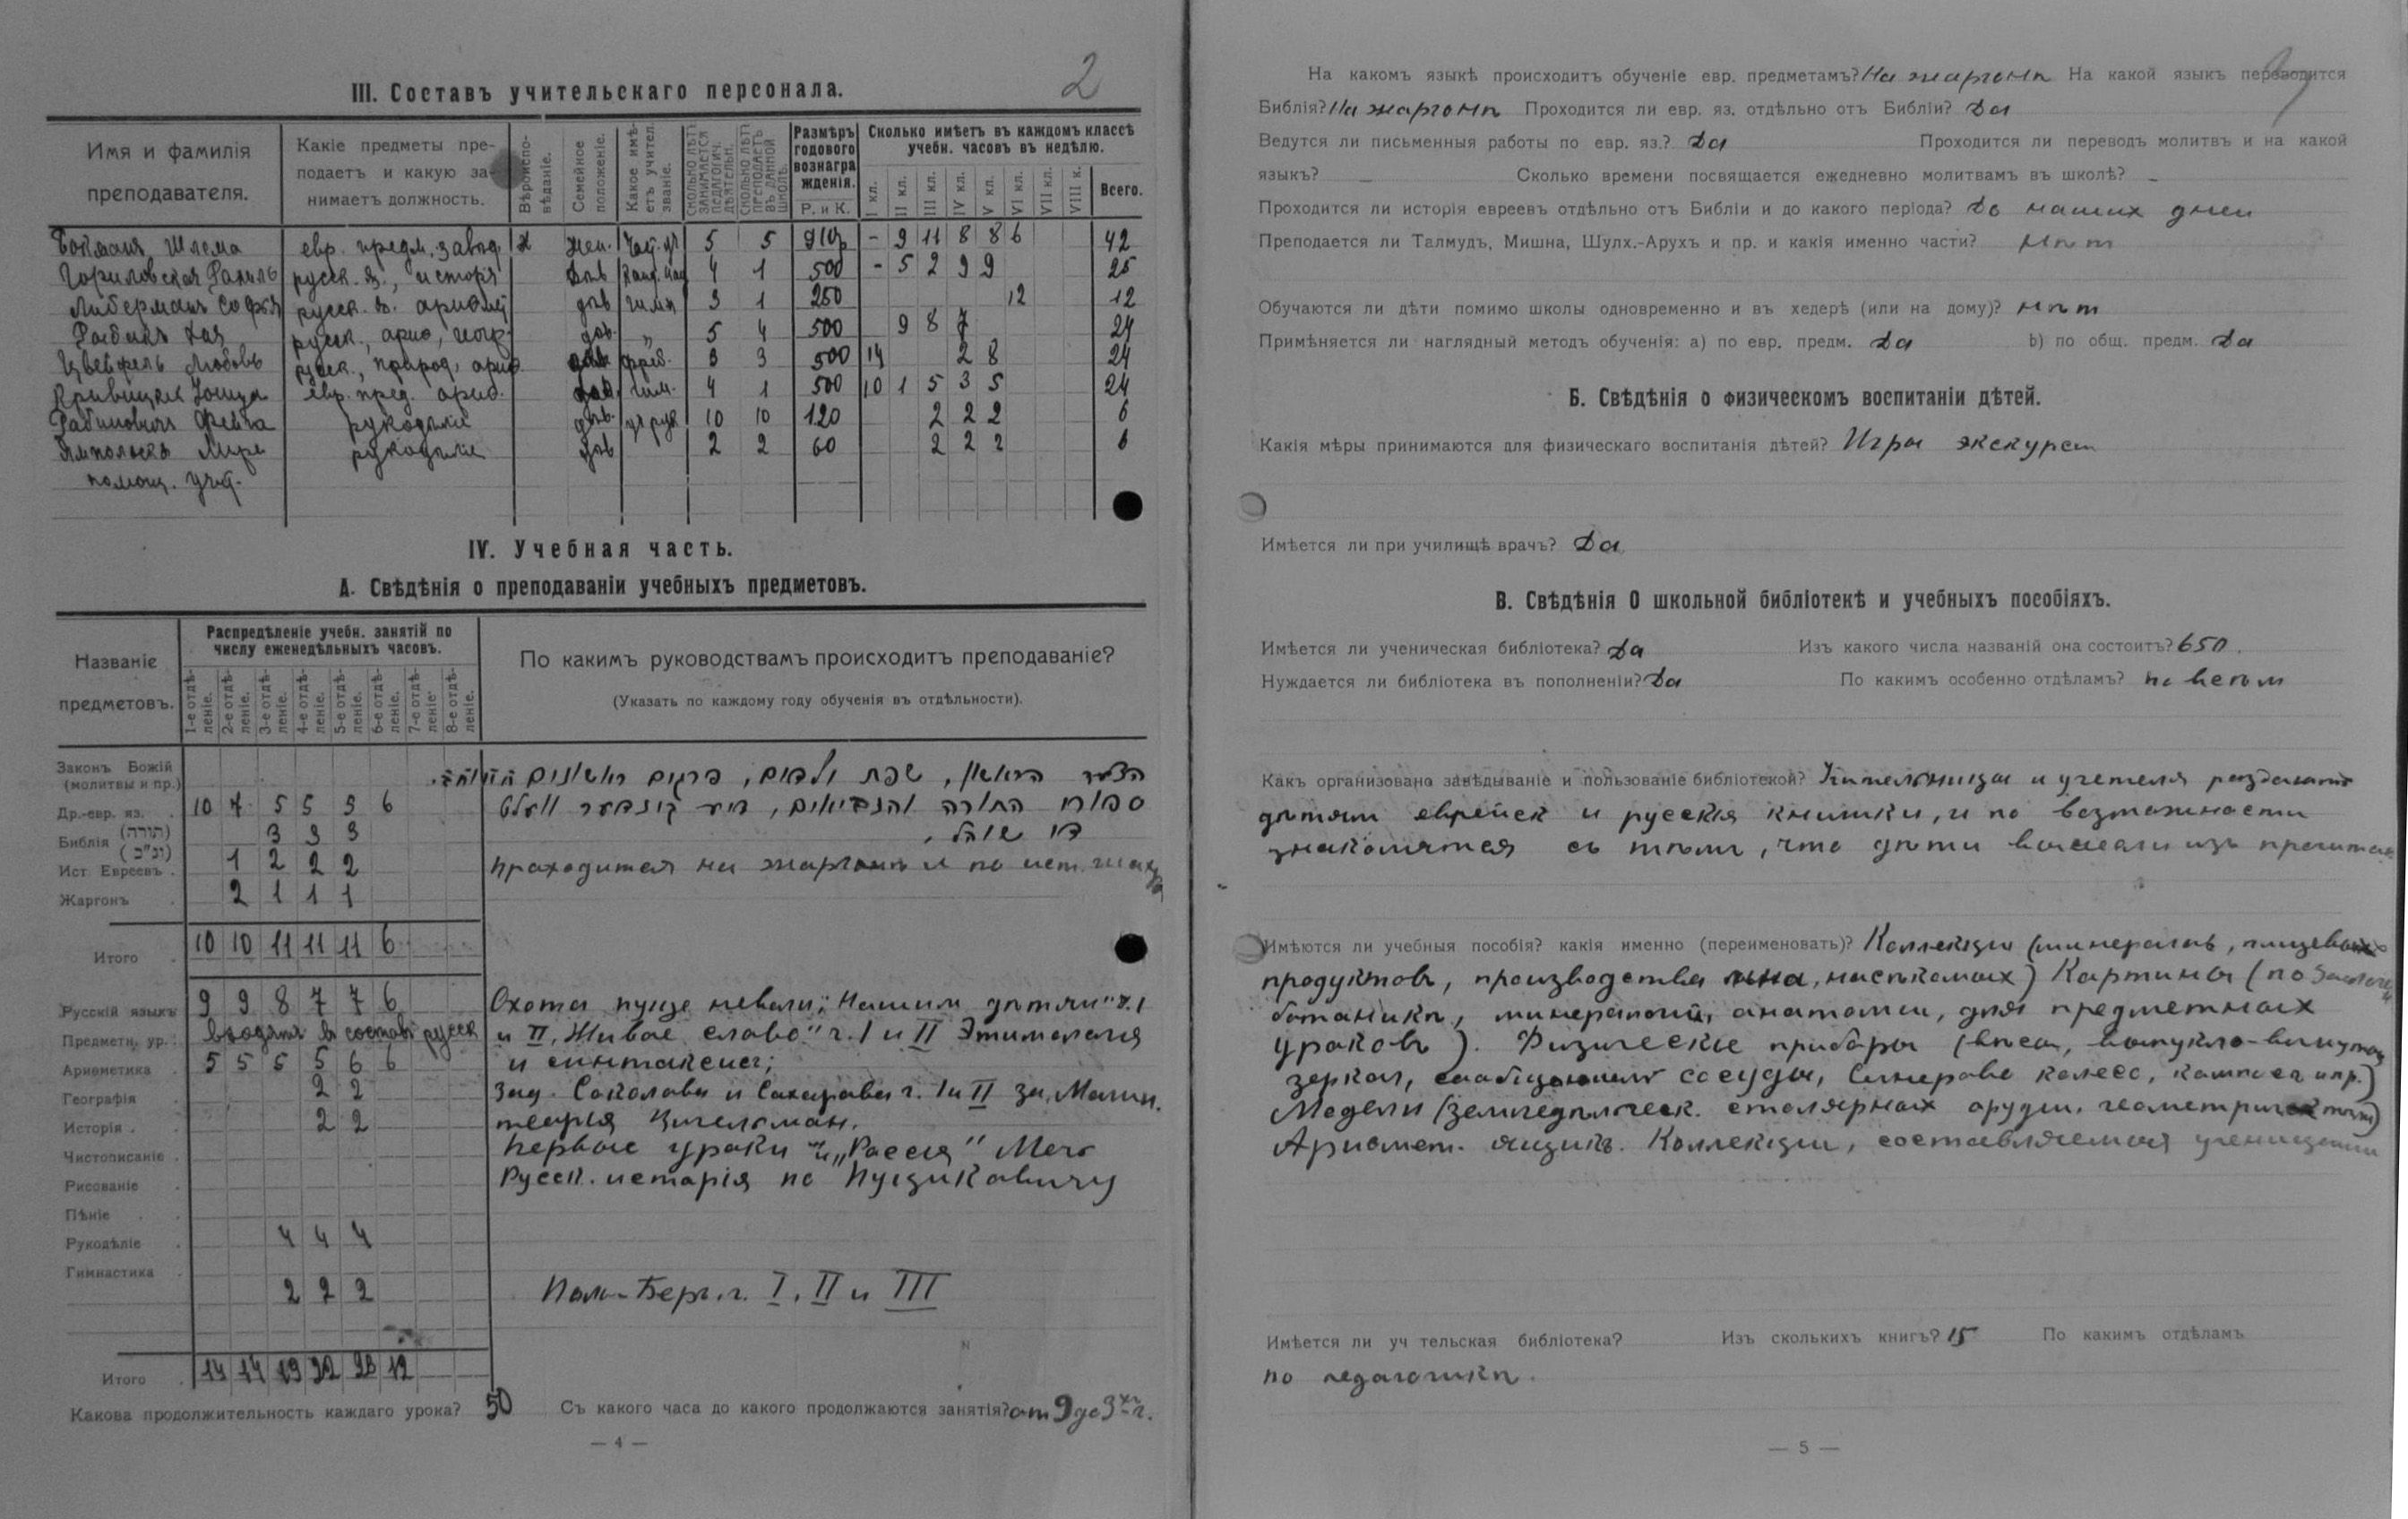 2
III. Составъ учительскаго персонала.
Имя и фамилія преподавателя.
Какіе предметы преподаетъ и какую занимаетъ должность.
Вѣроисповѣданіе.
Семейное положеніе.
Какое имѣетъ учител. званіе.
Сколько лѣтъ занимается педагогич. дѣятельн.
Сколько лѣтъ преподаетъ въ данной школѣ.
Размѣръ годового вознагражденія.
Р. и К.
Сколько имѣетъ въ каждомъ классѣ учебн. часовъ въ недѣлю.
I кл. II кл. III кл. IV кл. V кл. VI кл. VII кл. VIII к. Всего.
Шлема евр. предм. завѣд. жен. 5 5 910р - 9 11 8 8 6 42
Гориловская Рахиль русск. я., исторія дѣв 4 1 500 - 5 2 9 9 25
Либерманъ Софья русск. я. ариѳм дѣв гимн 3 1 250 12 12
Хая русск., ариѳ, дѣв. „ 5 4 500 9 8 7 24
Цвейфель Любовь русск., природ, ариѳ фреб. 3 3 500 14 2 8 24
евр. пред. ариѳ. гим. 4 1 500 10 1 5 3 5 24
Рабиновичъ рукодѣліе дѣв. 10 10 120 2 2 2 6
рукодѣліе дѣв 2 2 60 2 2 2 6
помощ. учит.
IV. Учебная часть.
А. Свѣдѣнія о преподаваніи учебныхъ предметовъ.
Названіе предметовъ.
Распредѣленіе учебн. занятій по числу еженедѣльныхъ часовъ.
1-е отдѣленіе. 2-е отдѣленіе. 3-е отдѣленіе. 4-е отдѣленіе. 5-е отдѣленіе. 6-е отдѣленіе. 7-е отдѣленіе. 8-е отдѣленіе.
По какимъ руководствамъ происходитъ преподаваніе?
(Указать по каждому году обученія въ отдѣльности).
Законъ Божій (молитвы и пр.) הצעד הראשון, שפת ילדים, פרקים ראשונים
Др.-евр. яз. 10 7 5 5 5 6 ספורי התורה והנביאים,
Библія (תורה) (נ״כ) 3 3 3
Ист. Евреевъ . 1 2 2 2 проходится на жаргонѣ и по ист.
Жаргонъ . 2 1 1 1
Итого . 10 10 11 11 11 6
Русскій языкъ 9 9 8 7 7 6 Охота пуще неволи; „Нашим дѣтям“ ч. I
Предметн. ур. входятъ въ составъ русск и II, „Живое слово“ ч. I и II Этимологія
Ариѳметика . 5 5 5 5 6 6 и синтаксисъ;
Географія . 2 2 Зад. Соколова и Сахарова ч. I и II
Исторія . . 2 2 теорія
Чистописаніе . Первые уроки и „Россія“ Мечъ
Рисованіе . Русск. исторія по Пуциковичу
Пѣніе . .
Рукодѣліе . 4 4 4
Гимнастика .
2 2 2 Поль-Беръ. ч. I, II и III
Итого . 14 14 19 22 23 12
Какова продолжительность каждаго урока? 50 Съ какого часа до какого продолжаются занятія? от 9 до 3
— 4 —
На какомъ языкѣ происходитъ обученіе евр. предметамъ? На жаргонѣ На какой языкъ переводится
Библія? На жаргонѣ Проходится ли евр. яз. отдѣльно отъ Библіи? Да
Ведутся ли письменныя работы по евр. яз.? Да Проходится ли переводъ молитвъ и на какой
языкъ? – Сколько времени посвящается ежедневно молитвамъ въ школѣ? –
Проходится ли исторія евреевъ отдѣльно отъ Библіи и до какого періода? До наших дней
Преподается ли Талмудъ, Мишна, Шулх.-Арухъ и пр. и какія именно части? Нѣт
Обучаются ли дѣти помимо школы одновременно и въ хедерѣ (или на дому)? нѣт
Примѣняется ли наглядный методъ обученія: а) по евр. предм. Да b) по общ. предм. Да
Б. Свѣдѣнія о физическомъ воспитаніи дѣтей.
Какія мѣры принимаются для физическаго воспитанія дѣтей? Игры экскурсіи
Имѣется ли при училищѣ врачъ? Да
В. Свѣдѣнія О школьной библіотекѣ и учебныхъ пособіяхъ.
Имѣется ли ученическая библіотека? Да Изъ какого числа названій она состоитъ? 650.
Нуждается ли библіотека въ пополненіи? Да По какимъ особенно отдѣламъ? по всѣм
Какъ организовано завѣдываніе и пользованіе библіотекой? Учительницы и учителя раздают
дѣтям еврейск и русскія книжки, и по возможности
знакомятся съ тѣмъ, что дѣти вынесли изъ
Имѣются ли учебныя пособія? какія именно (переименовать)? Коллекціи (минералов, пищевых
продуктов, производства льна, насѣкомых) Картины (по зоологіи
ботаникѣ, минералогіи, анатоміи, для предметных
уроковъ). Физическіе приборы (вѣсы, выпукло-вогнутое
зеркал, сообщающіе сосуды, Сегнерово колесо, компас и пр.)
Модели (земледѣльческ. столярных орудій, геометрическ тѣл)
Ариѳмет. ящикъ. Коллекціи, составляемыя ученицами
Имѣется ли уч тельская библіотека? Изъ сколькихъ книгъ? 15 По какимъ отдѣламъ
по педагогикѣ.
— 5 —